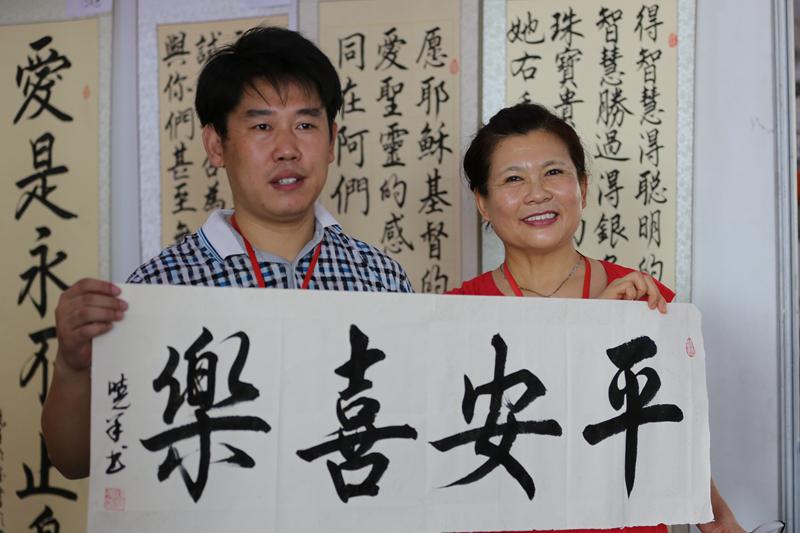 平安喜樂
得智慧得聰明的
智慧勝過得銀
珠寶貴
她右
願耶穌基督的
愛聖靈的感
同在阿們
與你們甚至
愛是永不止息